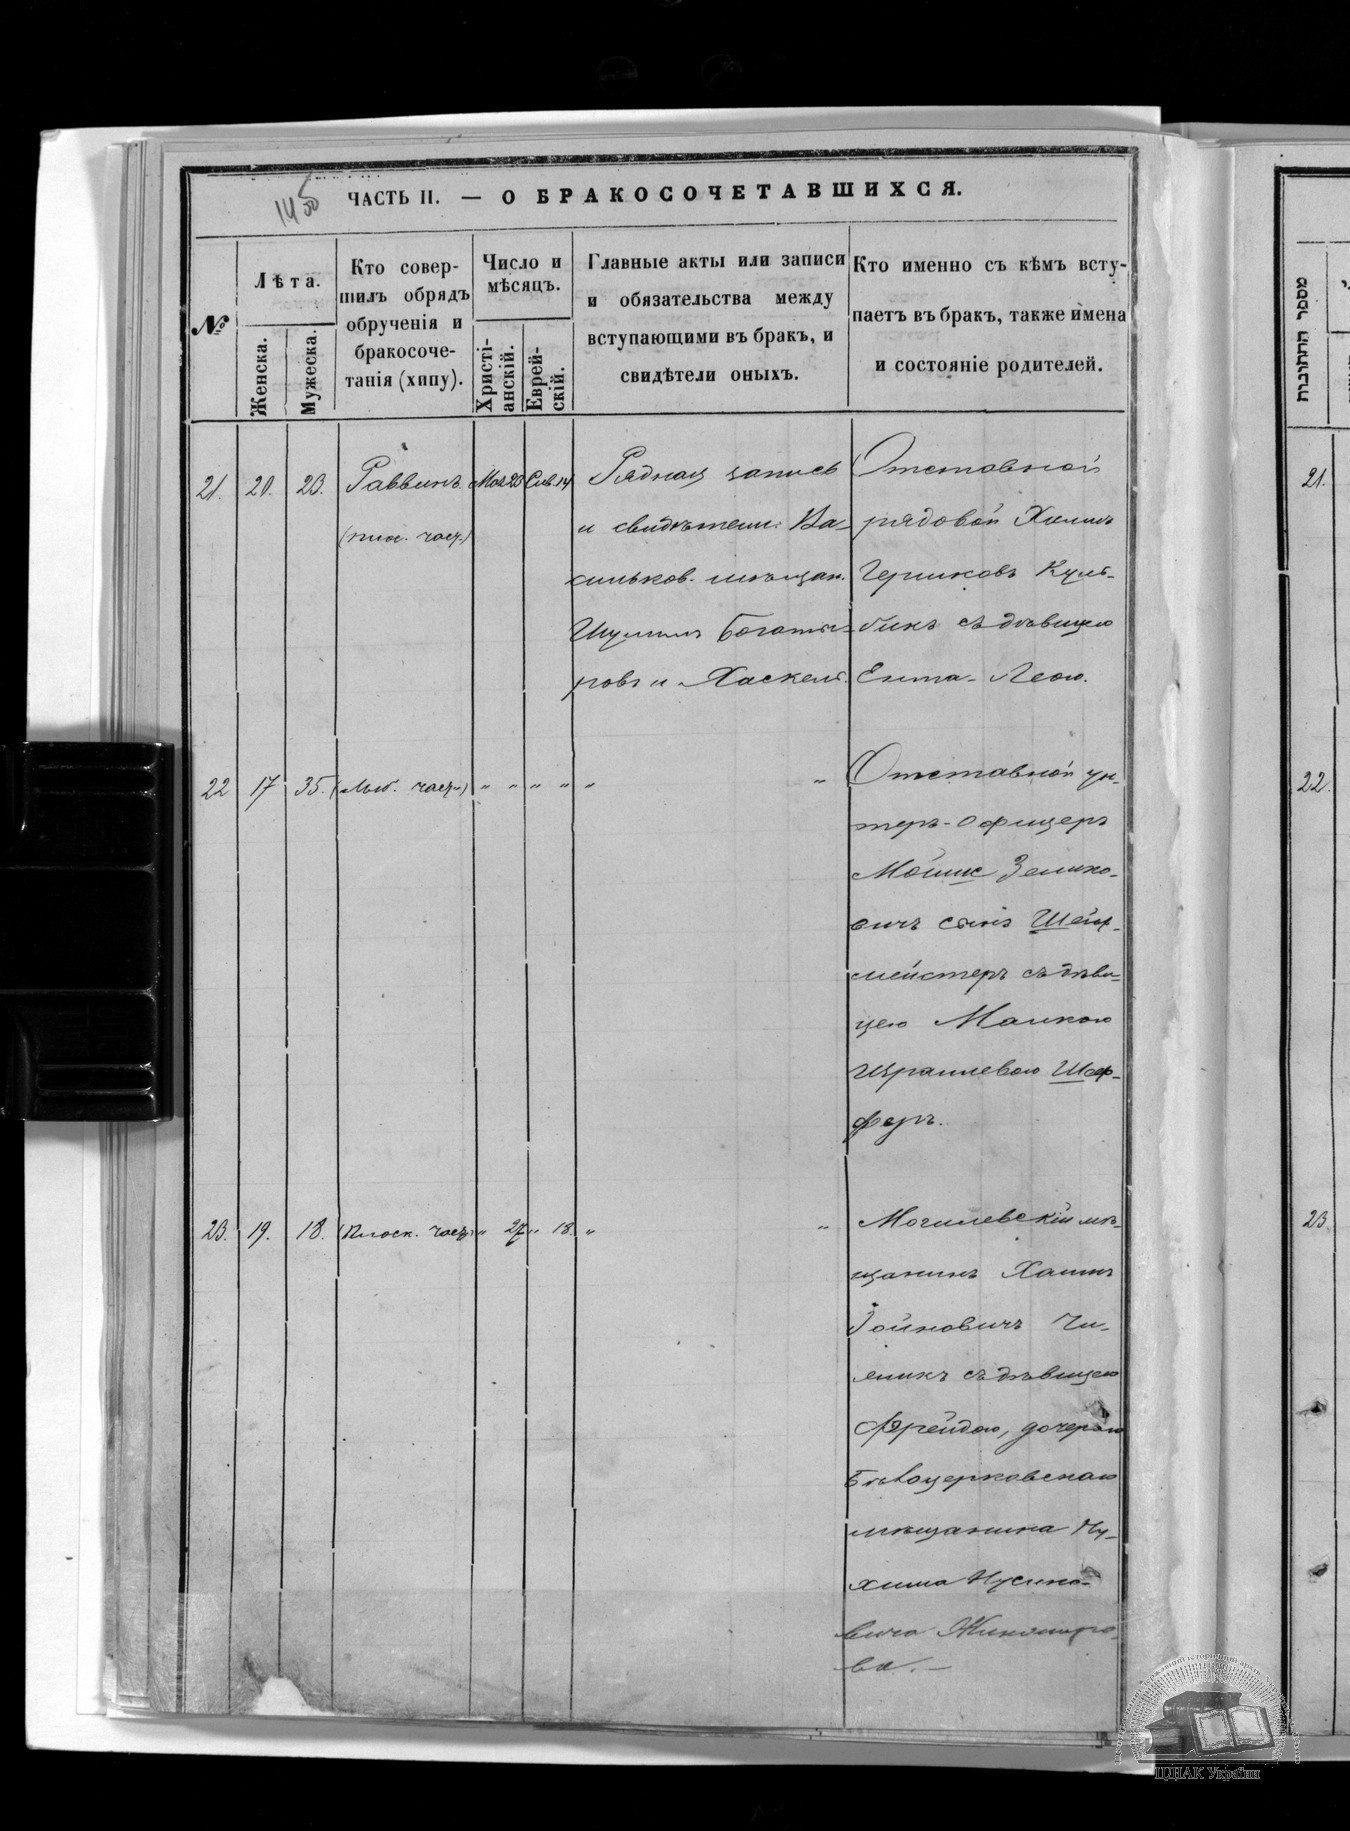 ЧАСТЬ II. — О БРАКОСОЧЕТАВШИХСЯ.
№
Лѣта.
Женска.
Мужеска.
Кто совер-
шилъ обрядъ
обрученія и
бракосоче-
танія (хипу).
Число и
мѣсяцъ.
Христі-
анскій.
Еврей-
скій.
Главные акты или записи
и обязательства между
вступающими въ бракъ, и
свидѣтели оныхъ.
Кто именно съ кѣмъ всту-
паетъ въ бракъ, также имена
и состояніе родителей.
21. 20. 23. Раввинъ
(плос. част.)
Рядная запись
и свидѣтели: Ва-
сильков. мѣщан.
Шулимъ Богаты-
ровъ и Хаскель.
Отставной
рядовой Хаимъ
Гершковъ Куль-
бикъ съ дѣвицею
Ента-Леою.
22 17 35. „ „ „ „ „ „
Отставной ун-
теръ-офицеръ
Мошис Зелико-
вичъ сынъ Шейн-
мейстеръ съ дѣви-
цею Малкою
Израилевою Шеф-
феръ.
23. 19. 18. (Плоск. част.) „ 27 „ 18. „ „
Могилевскій мѣ-
щанинъ Хаимъ
Іойновичъ Чи-
жикъ съ дѣвицею
Фрейдою, дочерью
Бѣлоцерковскаго
мѣщанина Ну-
хима Нусино-
вича Житомирс-
ва. —
מספר החתונות
21.
22.
23.
ЦДІАК України